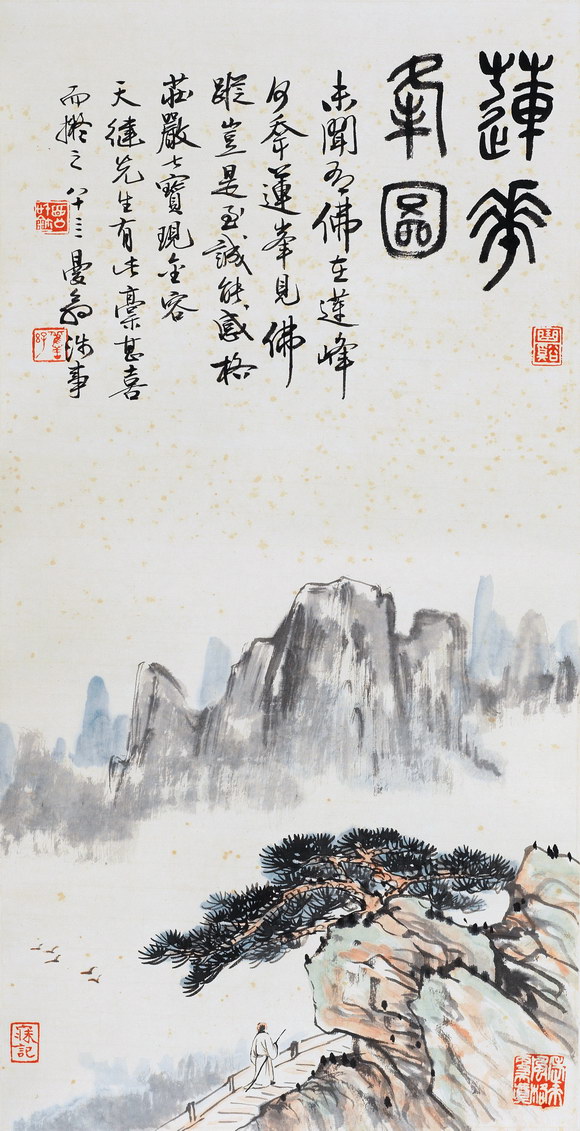 蓮華
峯圖
未聞有佛在蓮峰
何秊蓮峯見佛
蹤豈是至誠能感格
莊嚴七寶現金容
天先生有此稾甚喜
而擬之 八十三曼翁涉事